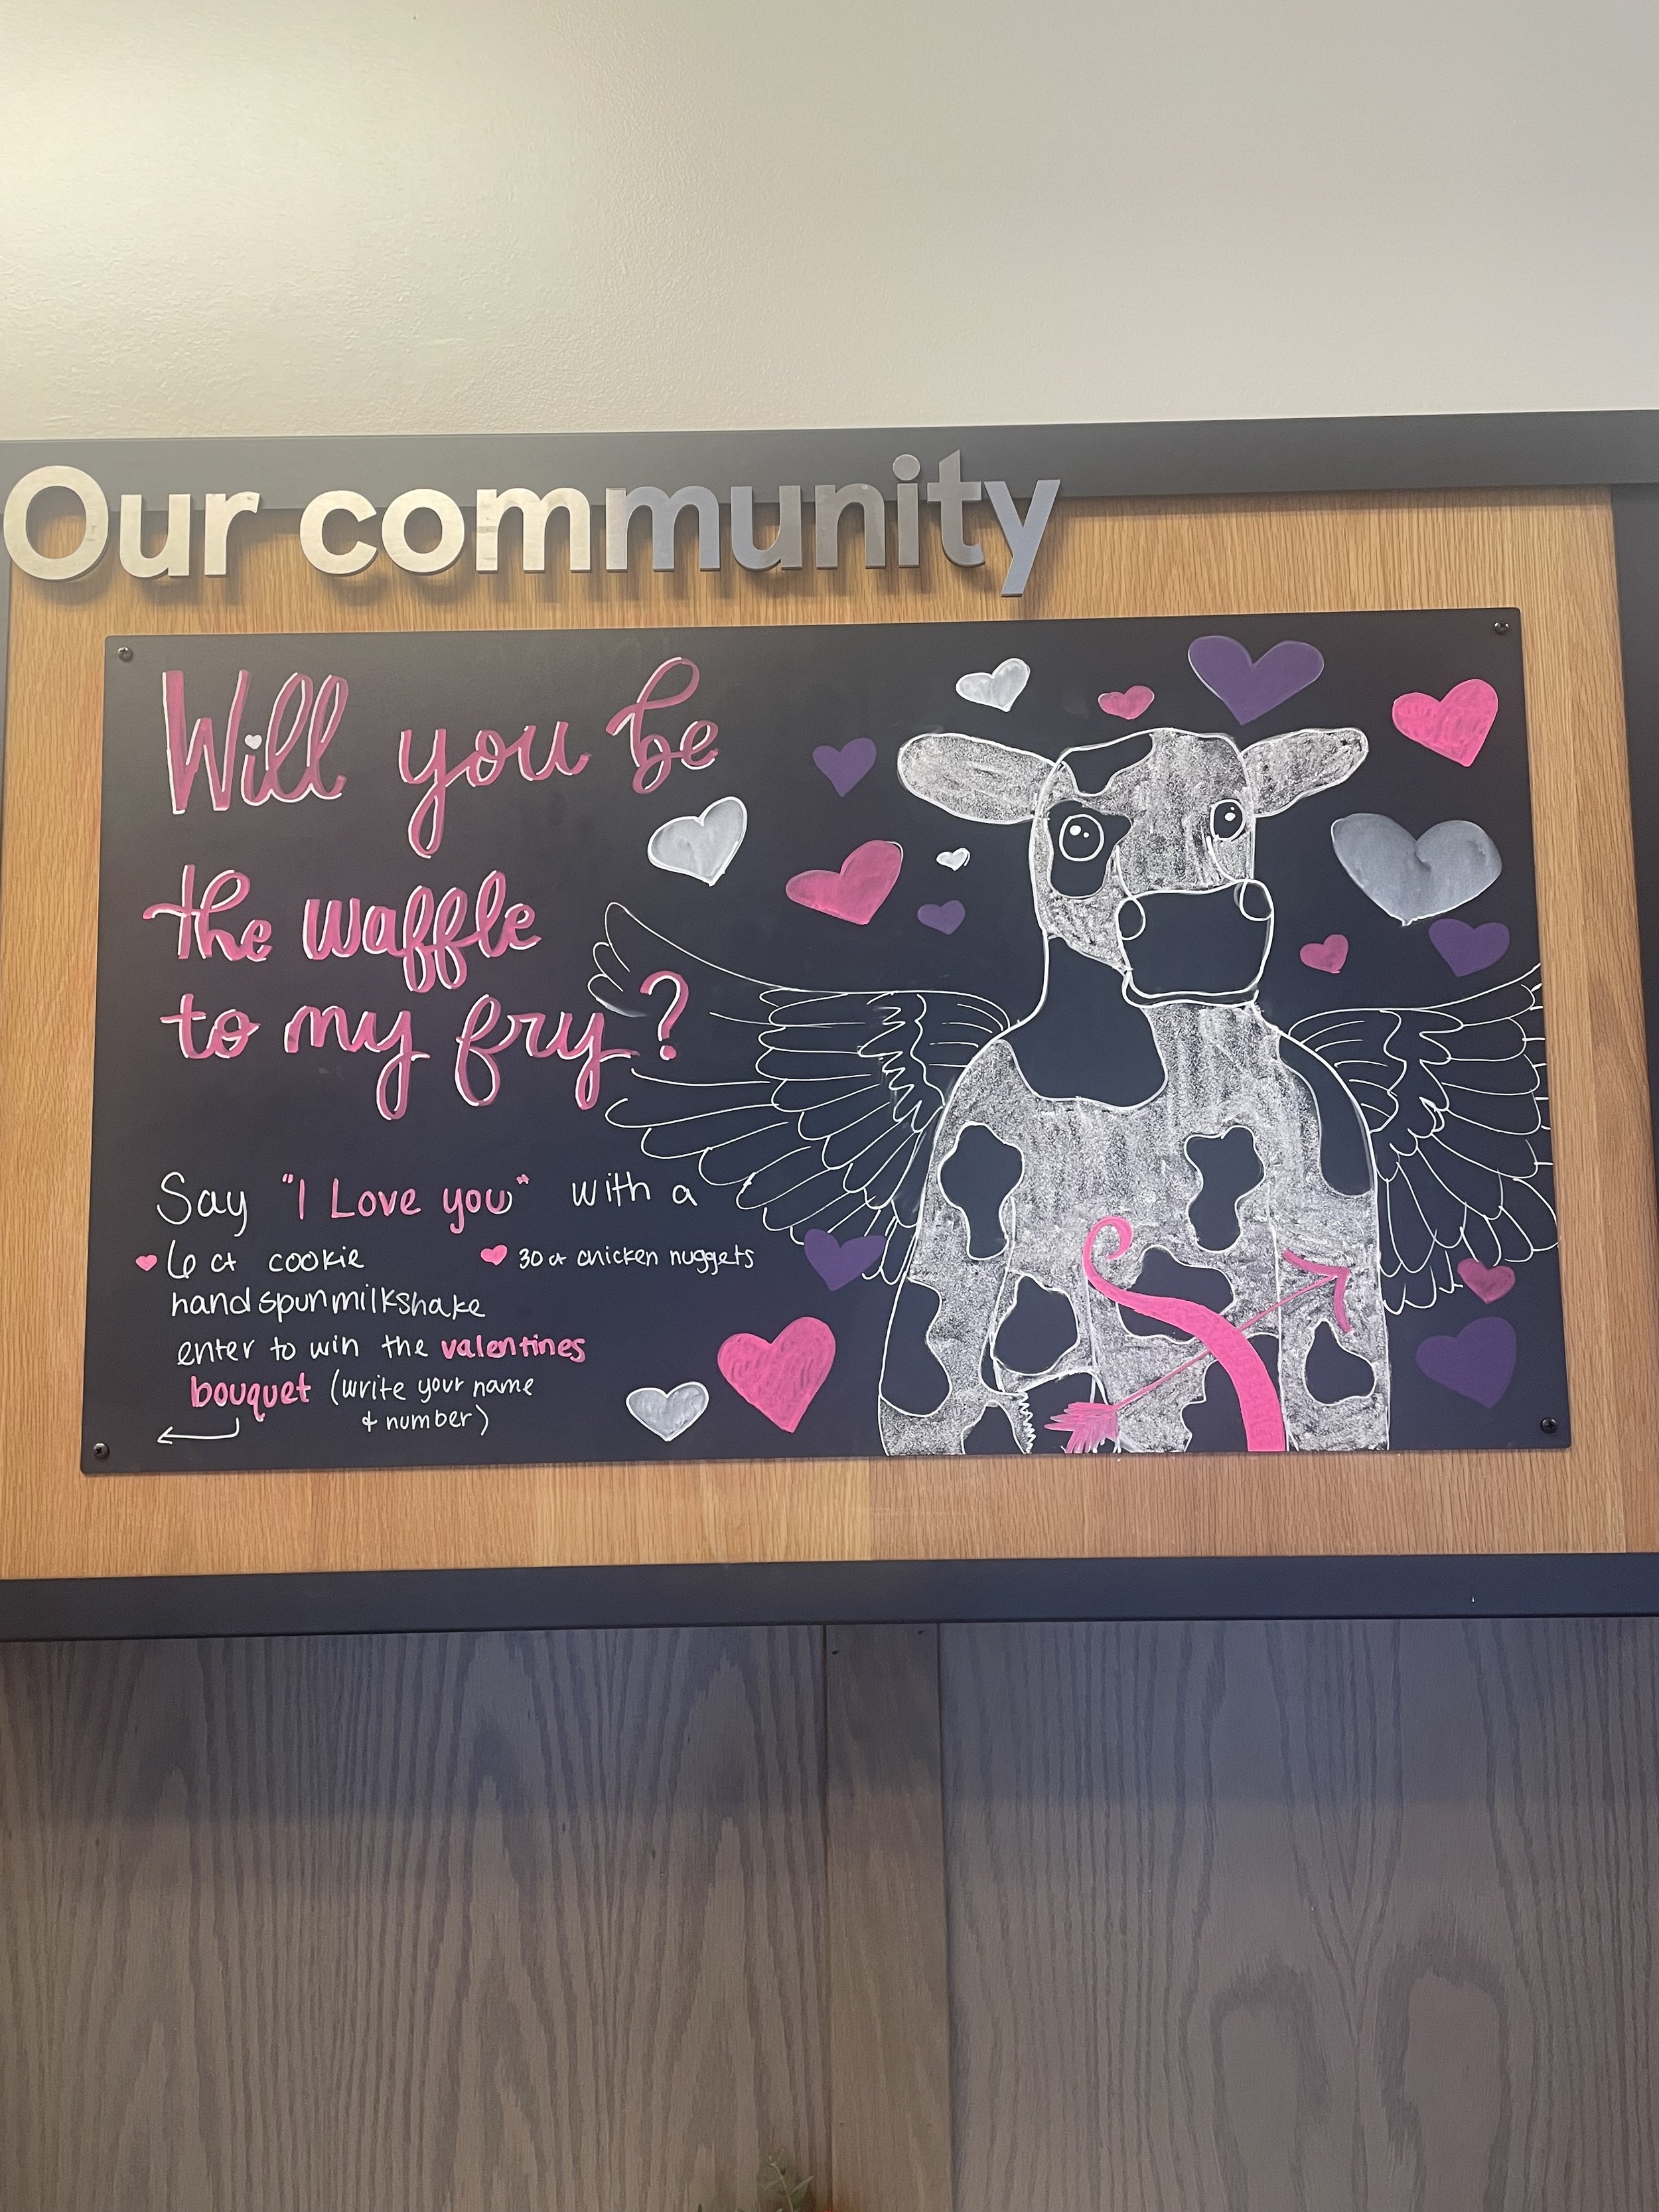 Our community
Will you be
the waffle
to my fry?
Say "I Love you" with a
6 ct cookie
30 ct chicken nuggets
handspun milkshake
enter to win the valentines
bouquet (write your name
& number)